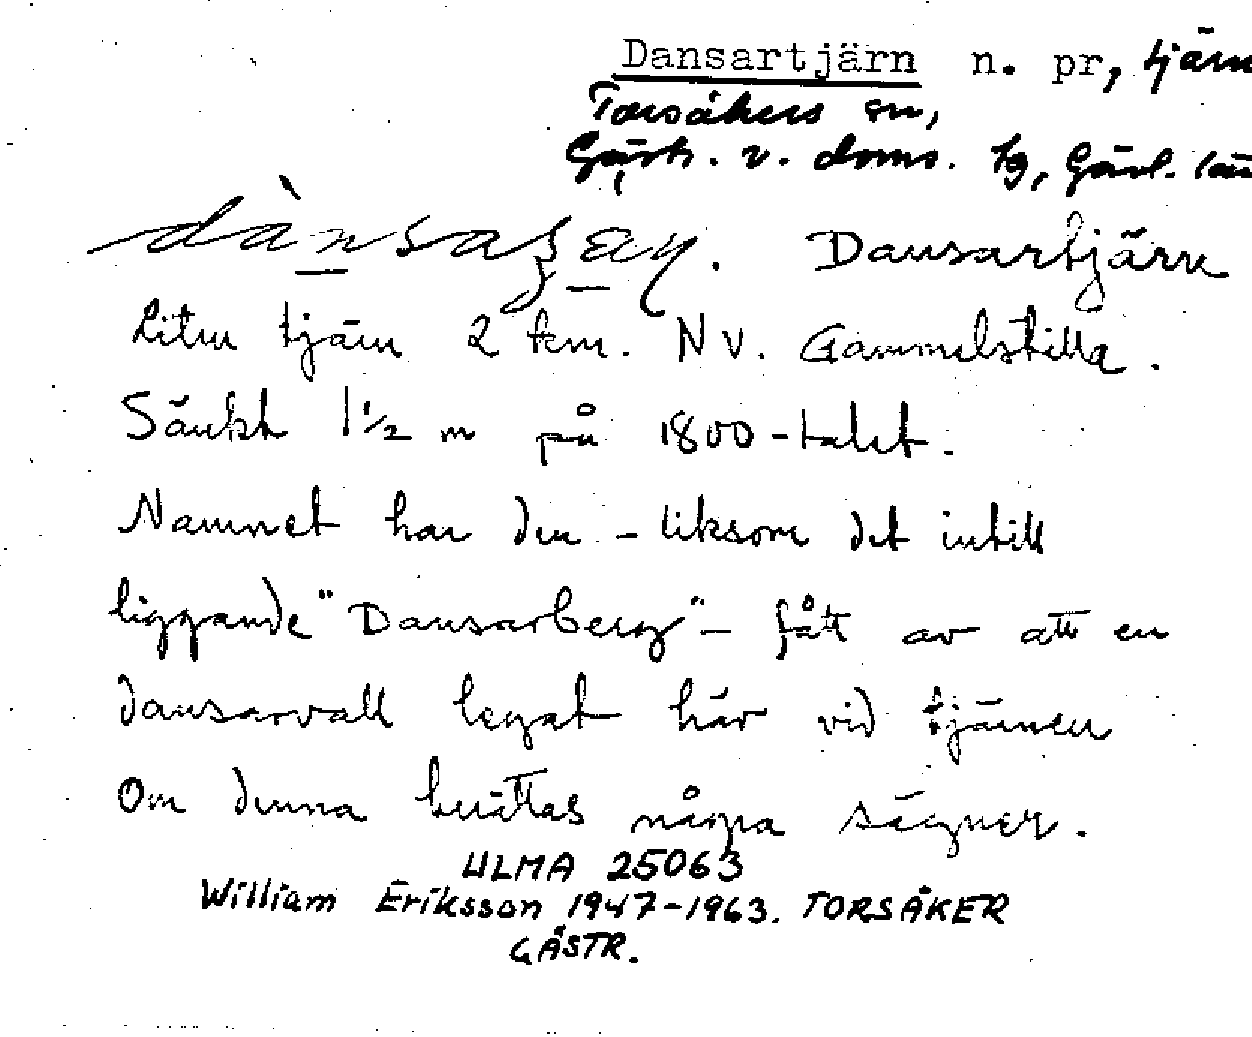 Dansartjärn n. pr, tjärn
Torsåkers sn,
Gästr. v. doms. tg, Gävl. län
Dansartjärn
Liten tjärn 2 km. NV. Gammelstilla.
Sänkt 1 1/2 m på 1800-talet.
Namnet har den - liksom det intill
liggande "Dansarberg" - fått av att en
dansarvall legat här vid tjärnen
Om denna berättas några sägner.
ULMA 25063
William Eriksson 1947-1963. TORSÅKER
GÄSTR.